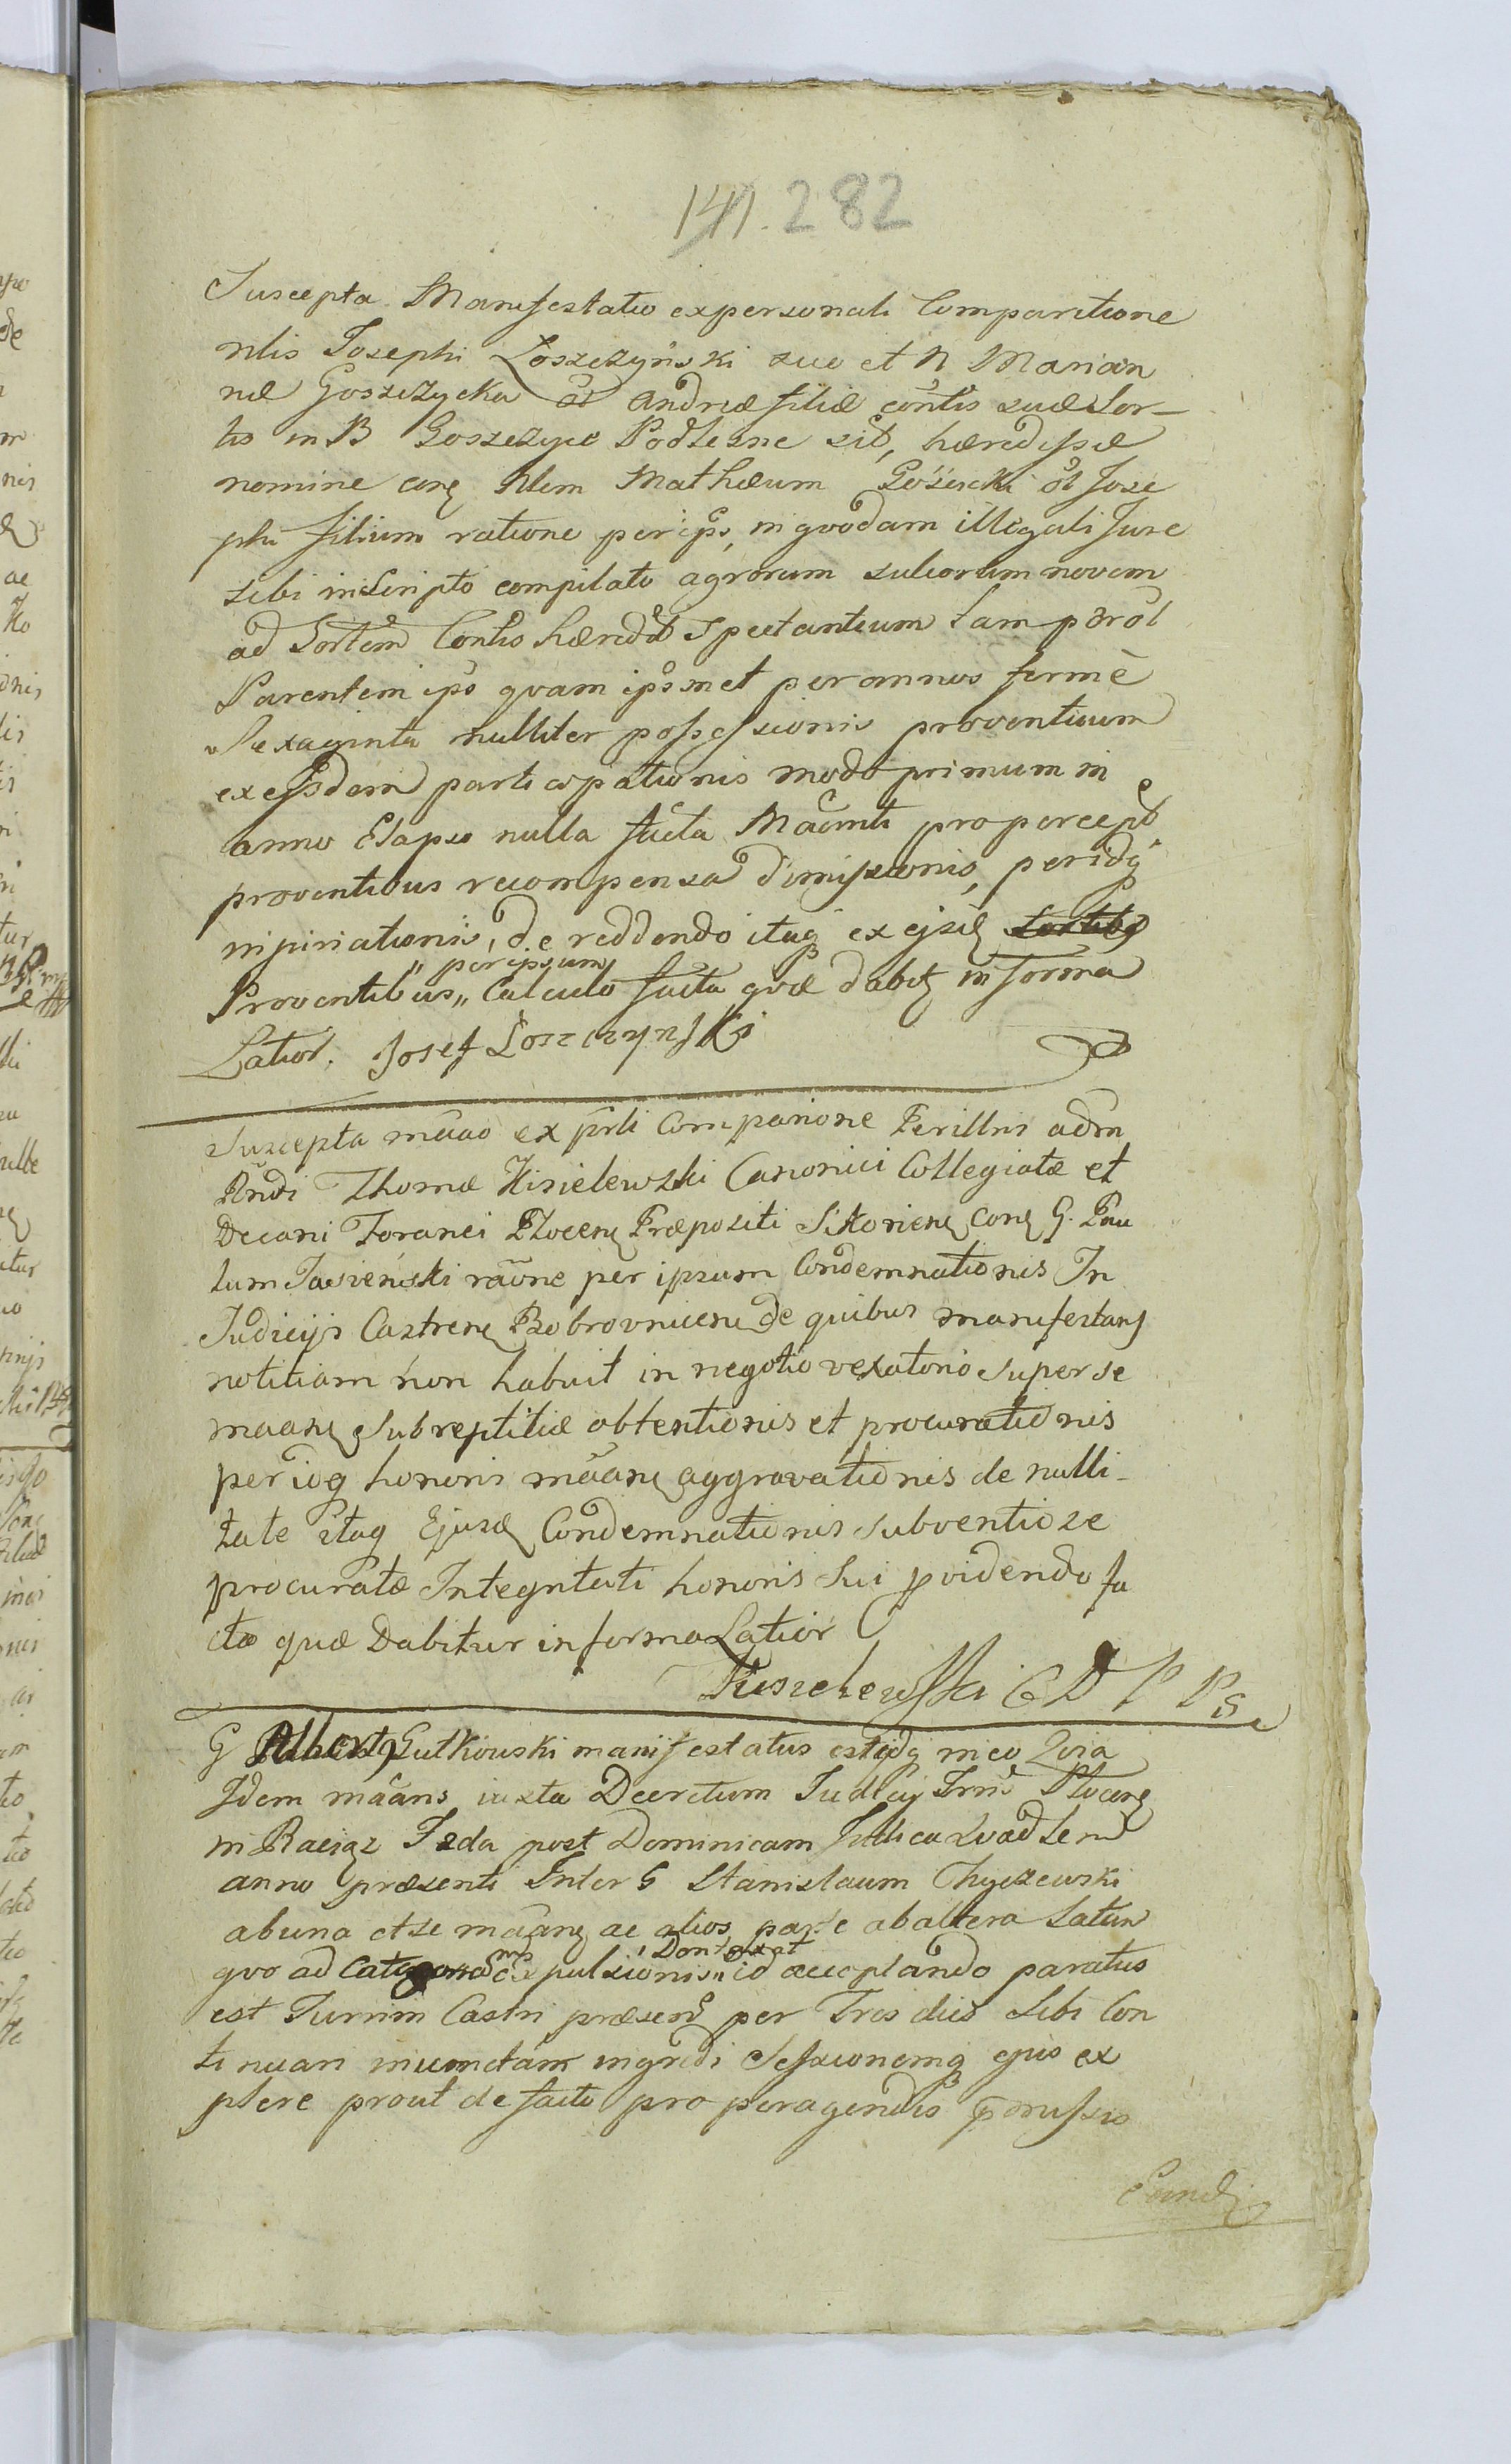 141. 282
Suscepta Manifestatio ex personali Comparitione
nlis Josephi Łoszczyński suo et N Marian
næ Goszczycka ol Andreæ filiæ contis suæ Sor-
tis in B Goszczyce Podlesne sit, hæredissæ
nomine con Nlem Mathæum ol Jose
phi filium ratione per ips, in qvodam illegali Jure
sibi inscripto compilato agrorum sulcorum novem
ad Sortem Contis hæredit Spectantium tam p ol
Parentem ips qvam ipsmet per annos fermè
Sexaginta nulliter possessionis proventuum
ex ejsdem participationis modo primum in
anno Elapso nulla facta Macnti pro percept
proventibus recompensa dimissionis, per idq
injuriationis, de reddendo itaq ex ejsd
Proventibus „ per ipsum „ Calculo facta qvæ dabit in forma
Latior. Josef Łoszczynski
Suscepta mãao ex prli Comparione Perillris adm
Rndi Thomæ Kisielewski Canonici Collegiatæ et
Decani Foranei Plocen Præpositi Sikorien con G. Pau
lum Jasieński raone per ipsum Condemnationis In
Judicijs Castren Bobrovnicen de quibus manifestans
notitiam non habuit in negotio vexatorio super se
maan subreptitiæ obtentionis et procurationis
per idq honoris mãan aggravationis de nulli-
tate itaq Ejusd Condemnationis subventiose
procuratæ Integritati honoris sui pvidendo fa
cta quæ Dabitur in forma Latior
Kisielewski C D P P S
G Albert Gutkowski manifestatus est idq in eo Qvia
Idem mãans iuxta Decretum Judicij Trni Plocen
in Raciąz Fzda post Dominicam Judica Qvadlen
anno præsenti Inter G Stanislaum Chyczewski
ab una et se mãan ac alios parte ab altera Latum
qvo ad expulsionis „ Dontaxat id acceptando paratus
est Turrim Castri præsen per Tres dies sibi Con
tinuari ingredi Sessionemq ejus ex
plere prout de facto pro peragendis pmissis
Eund